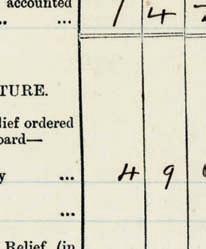 accounted
... ... 1 4
TURE.
lief ordered
oard—
y ... 4 9
...
Relief (in